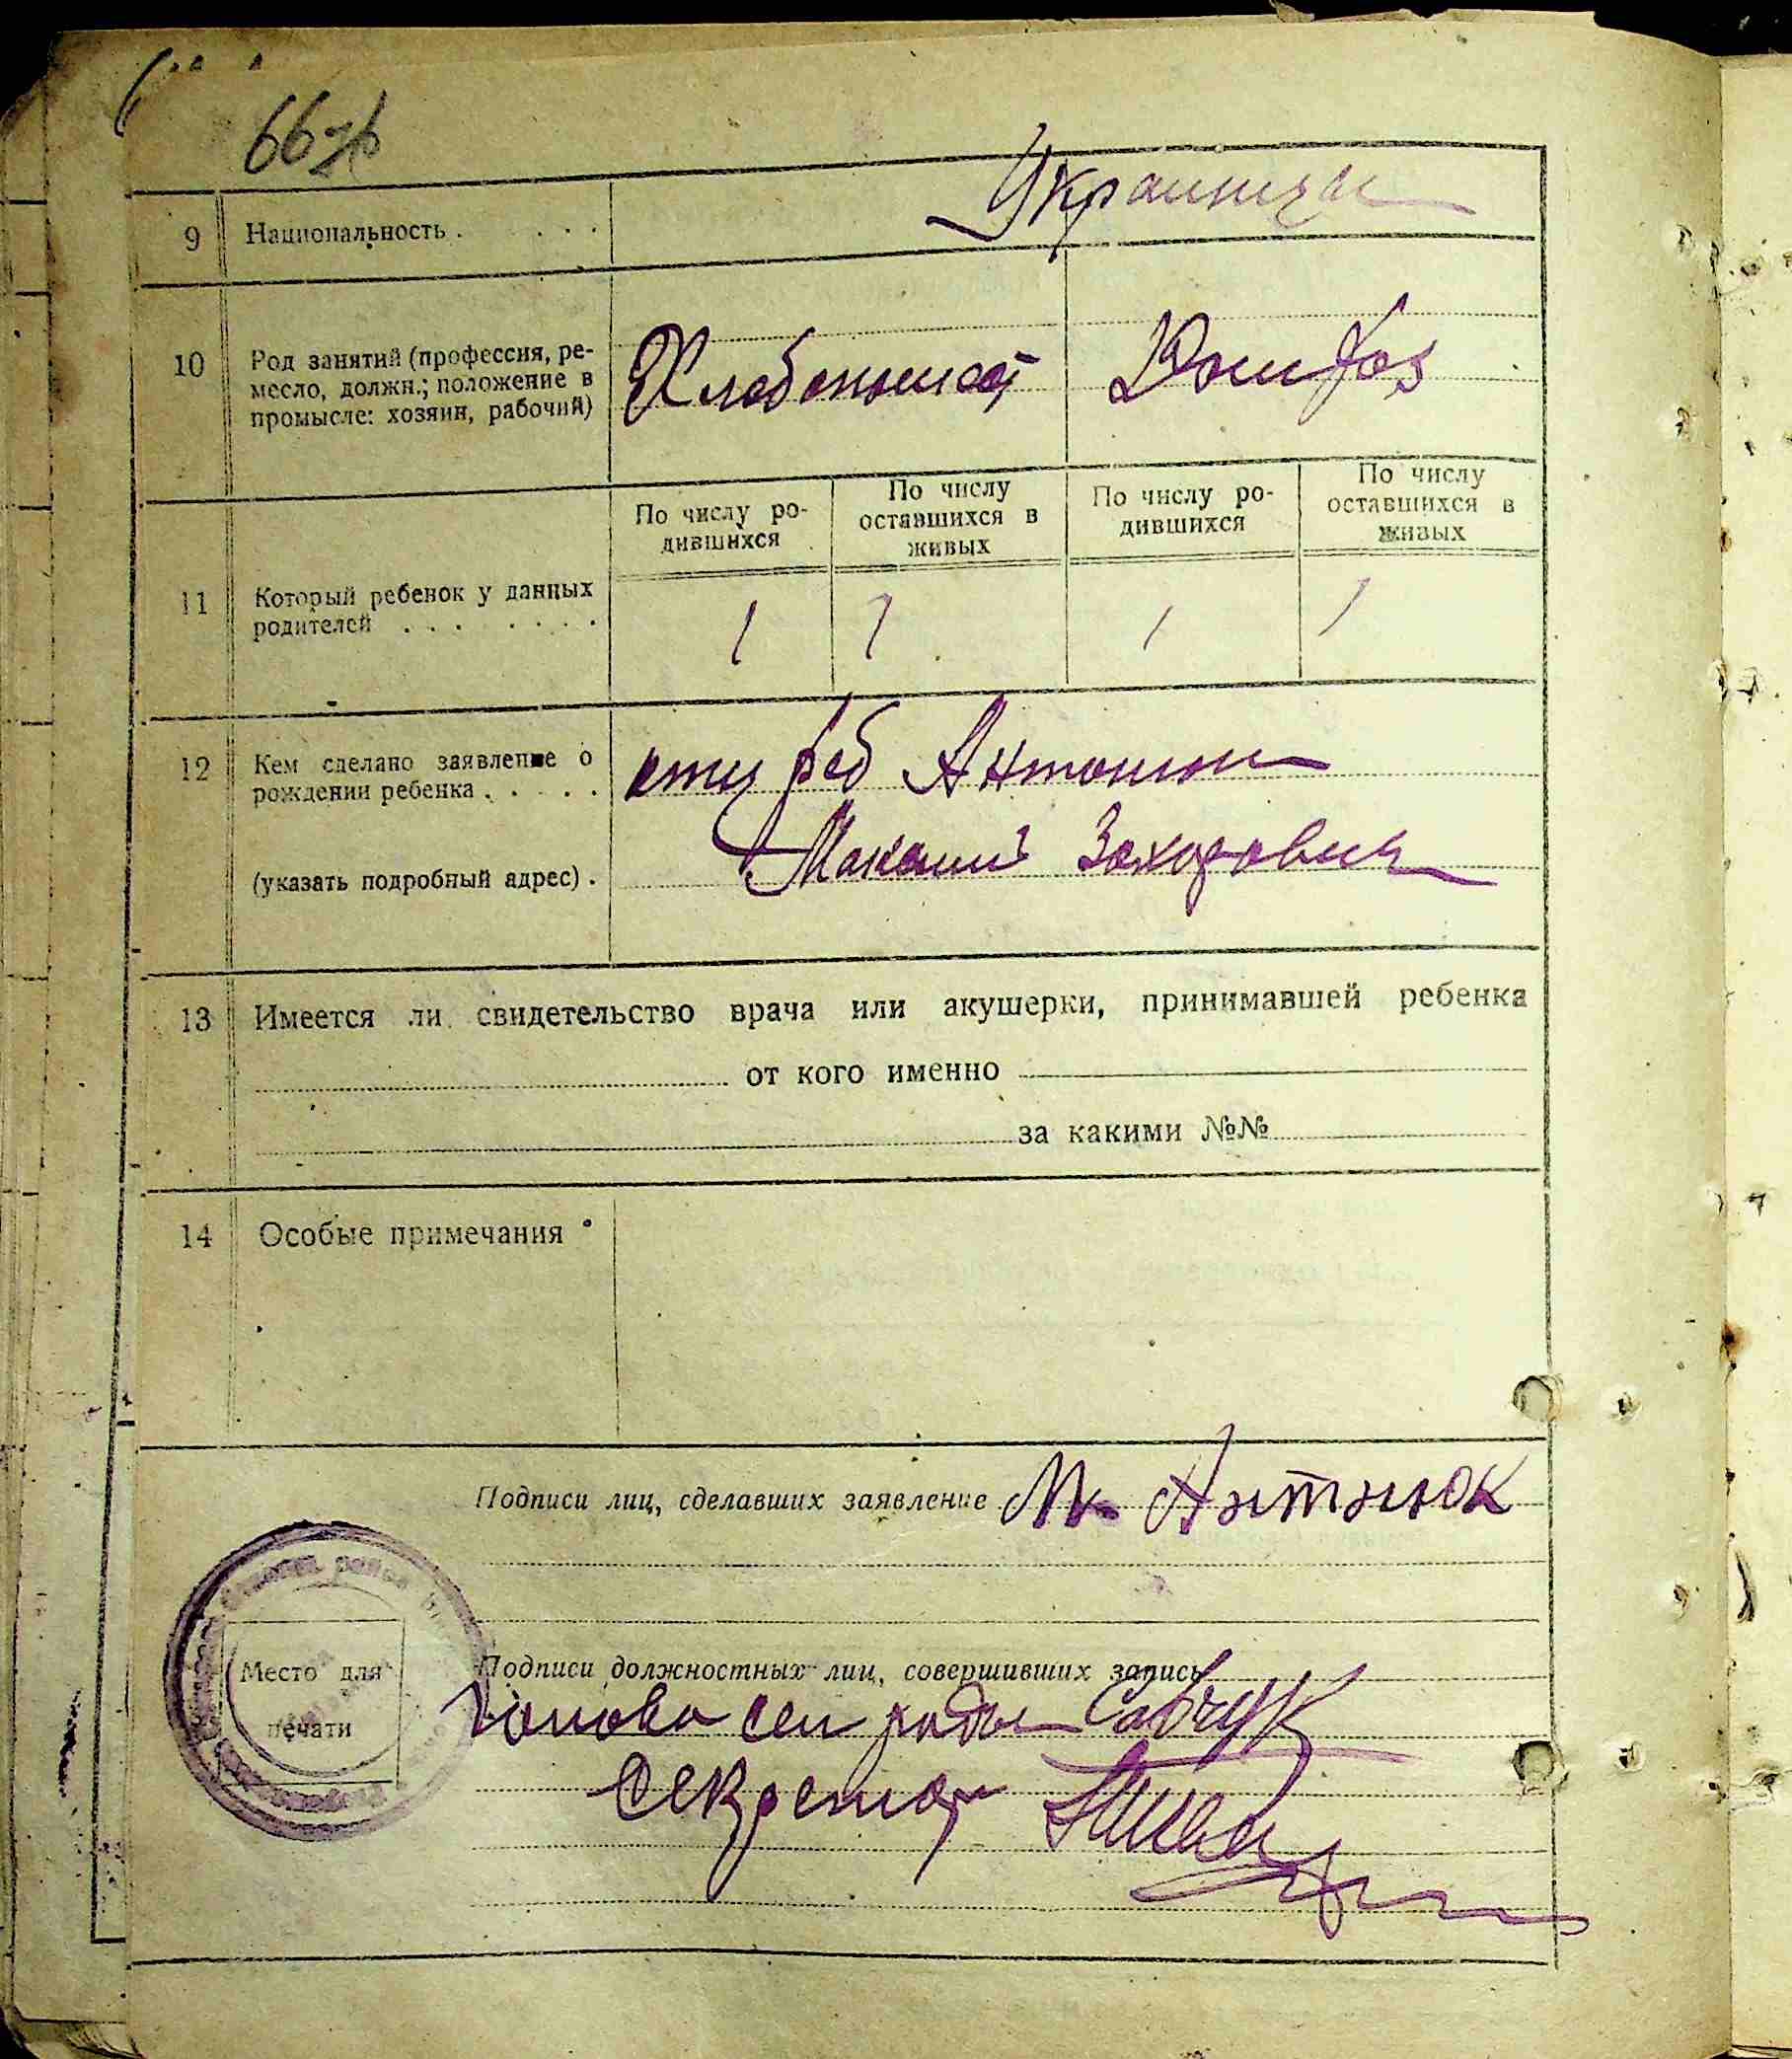 66
9 Национальность . . . . Украинцы
10 Род занятий (профессия, ре-
месло, должн.; положение в
промысле: хозяин, рабочий)
По числу ро-
дившихся
По числу
оставшихся в
живых
По числу ро-
дившихся
По числу
оставшихся в
живых
11 Который ребенок у данных
родителей . . . . . . .
1 1 1 1
12 Кем сделано заявление о
рождении ребенка . . . . .
отец реб Антонюк
(указать подробный адрес) .
Захарович
13 Имеется ли свидетельство врача или акушерки, принимавшей ребенка
от кого именно
за какими №№
14 Особые примечания
Подписи лиц, сделавших заявление Антнюк
Место для
печати
Подписи должностных лиц, совершивших запись
Голова сел ради Савчук
Секретар